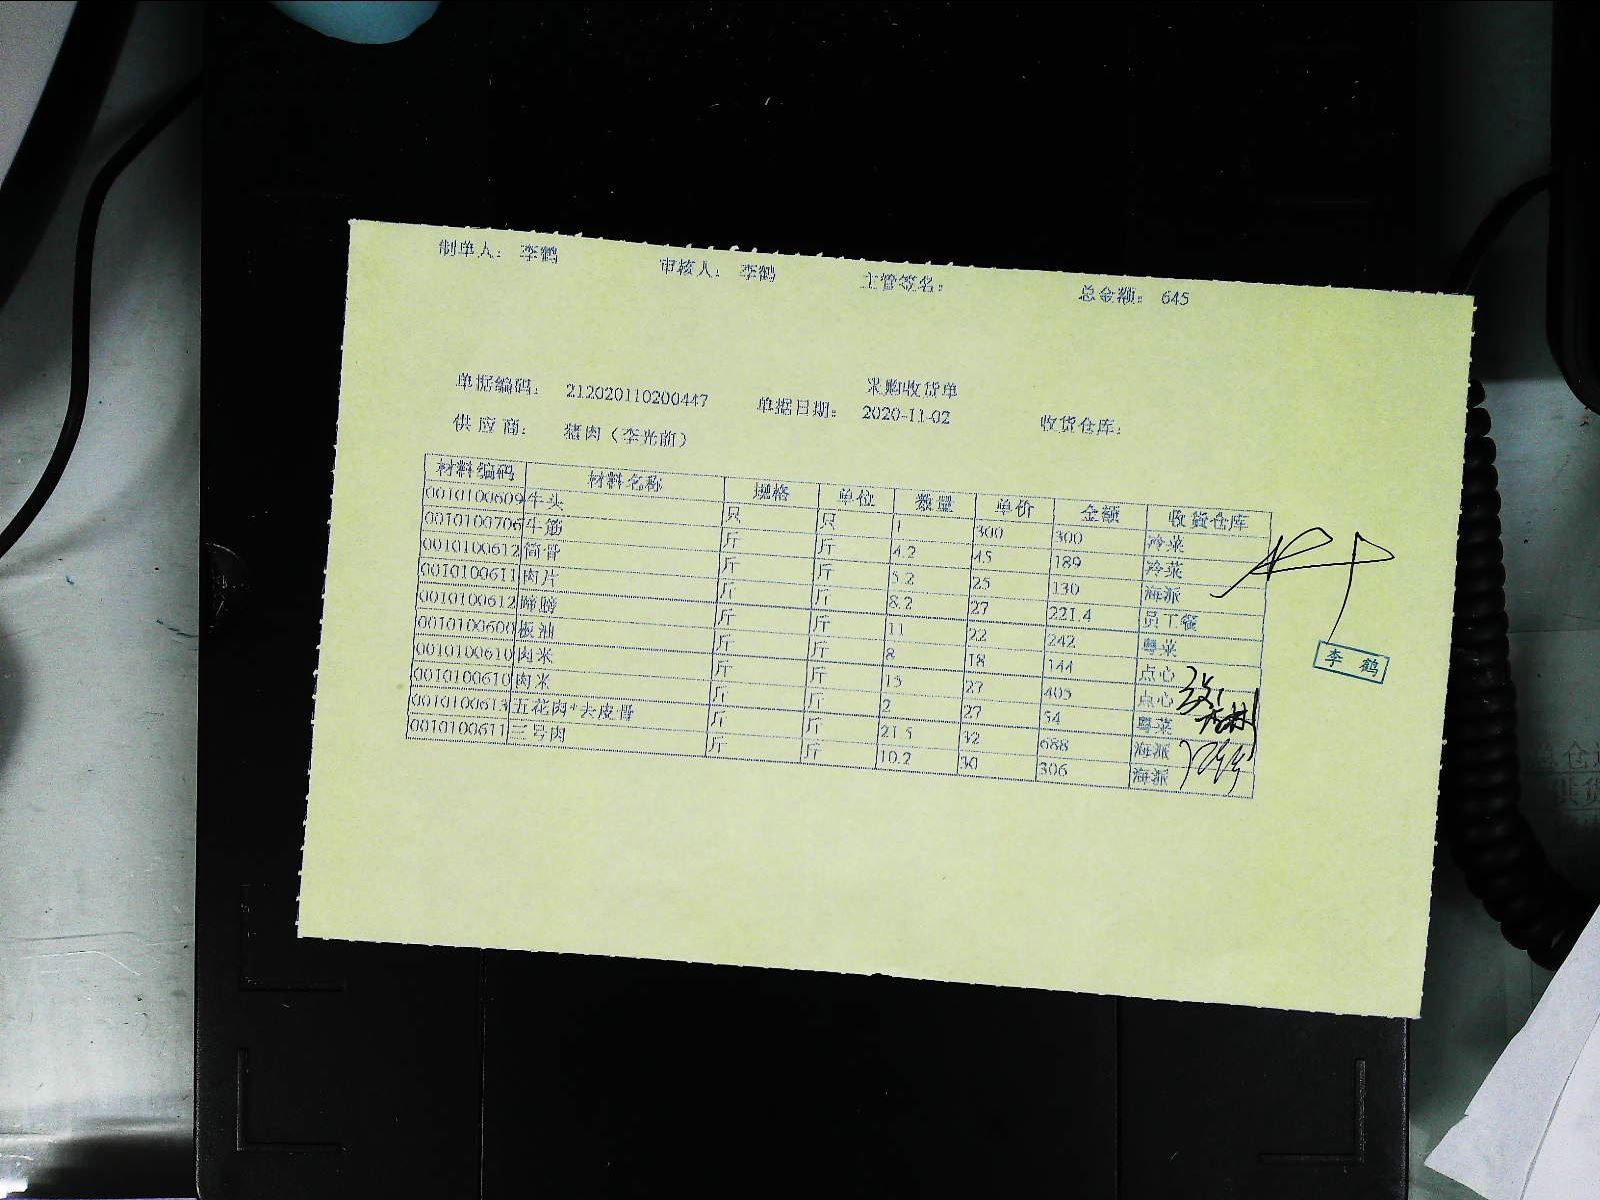 制单人： 李鹤 审核人： 李鹤 主管签名： 总金额： 645
采购收货单
单据编码： 212020110200447 单据日期： 2020-11-02 收货仓库：
供应商： 猪肉（李光前）
材料编码 材料名称 规格 单位 数量 单价 金额 收货仓库
0010100609 牛头 只 只 1 300 300 冷菜
0010100706 牛筋 斤 斤 4.2 45 189 冷菜
0010100612 筒骨 斤 斤 5.2 25 130 海派
0010100611 肉片 斤 斤 8.2 27 221.4 员工餐
0010100612 蹄髈 斤 斤 11 22 242 粤菜
0010100600 板油 斤 斤 8 18 144 点心
0010100610 肉米 斤 斤 15 27 405 点心
0010100610 肉米 斤 斤 2 27 54 粤菜
0010100613 五花肉*去皮骨 斤 斤 21.5 32 688 海派
0010100611 三号肉 斤 斤 10.2 30 306 海派
李鹤